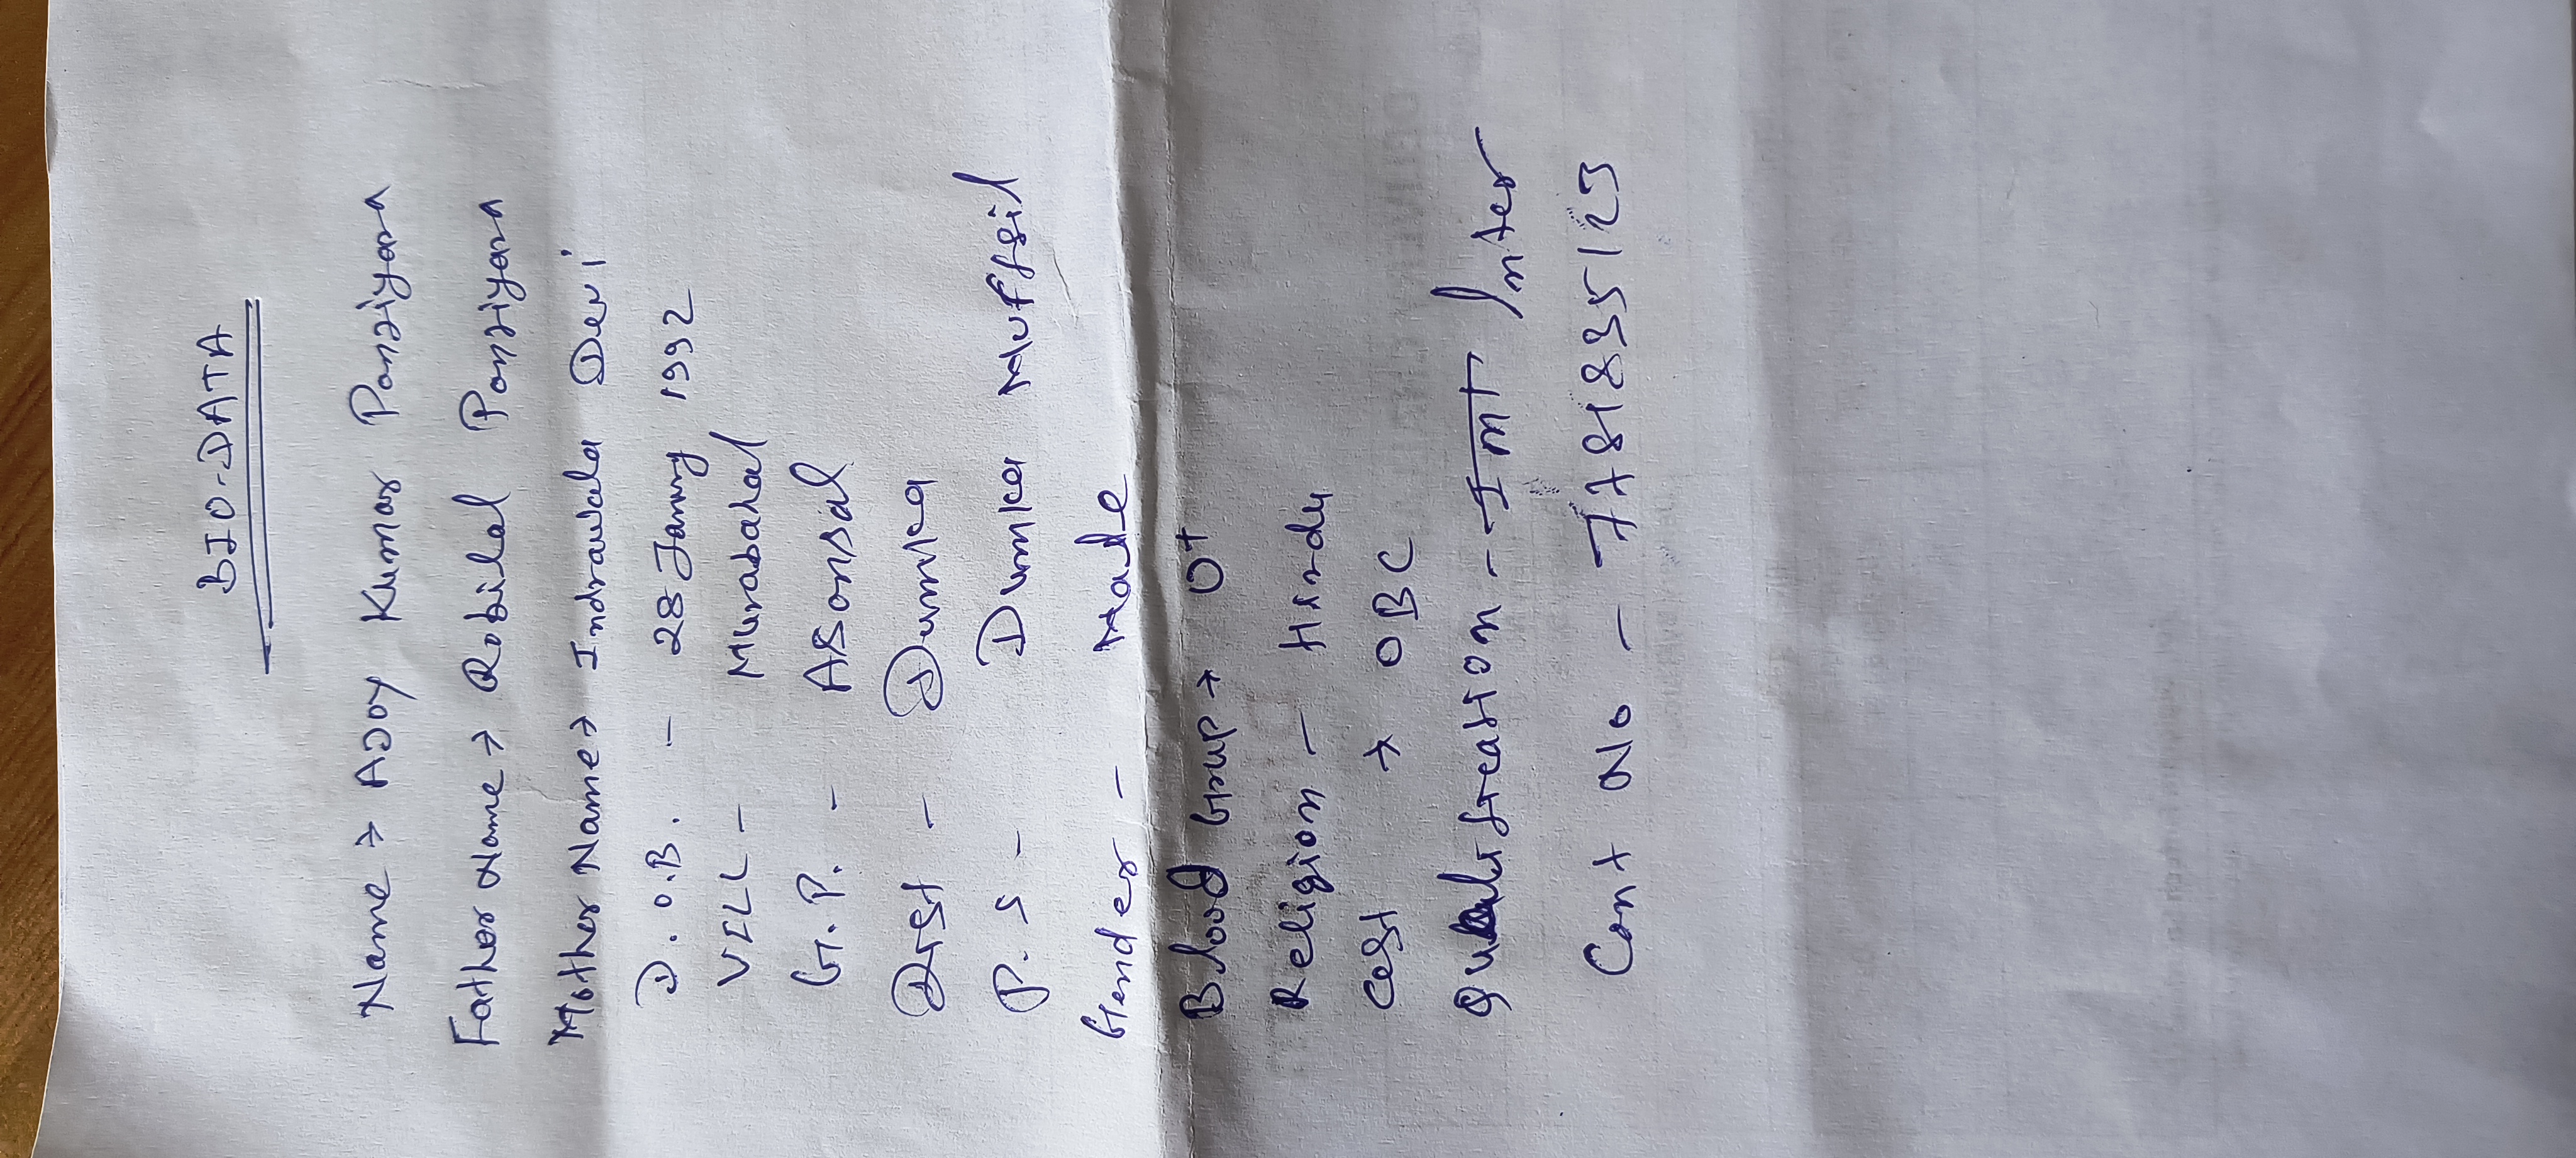 BIO-DATA
Name → AJOY Kumar Panjiyara
Father Name → Robilal Panjiyara
Mother Name → Indrawala Devi
D.O.B. - 28 Janury 1992
VILL - Murabahal
G.P. - ASansal
Dist - Dumka
P.S - Dumka Muffsil
Gender - Male
Blood Group → O+
Religion - Hindu
Cast → OBC
Qualification - Inter
Cont No -